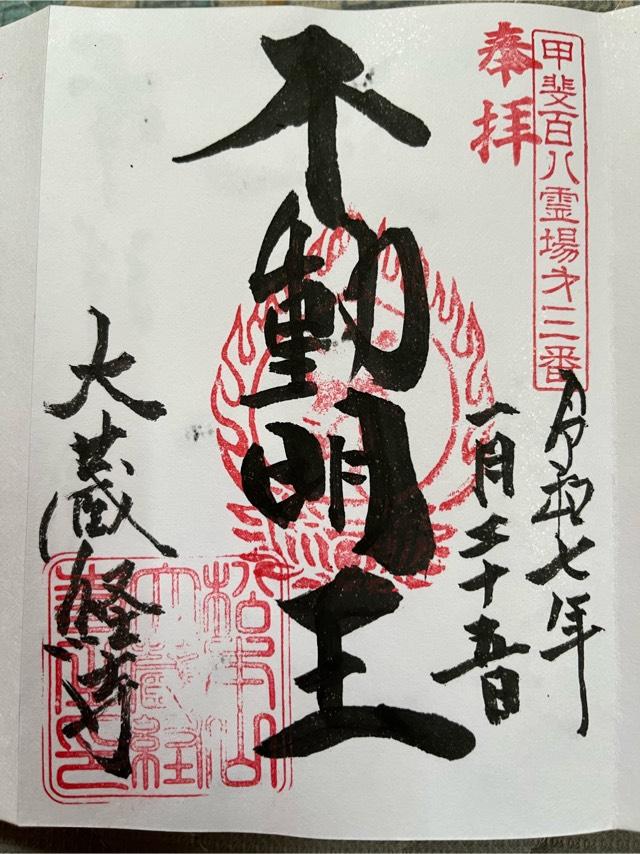 甲斐百八霊場才三番
奉拝
令和七年
一月二十五日
不動明王
大蔵経寺
松本山
大蔵経